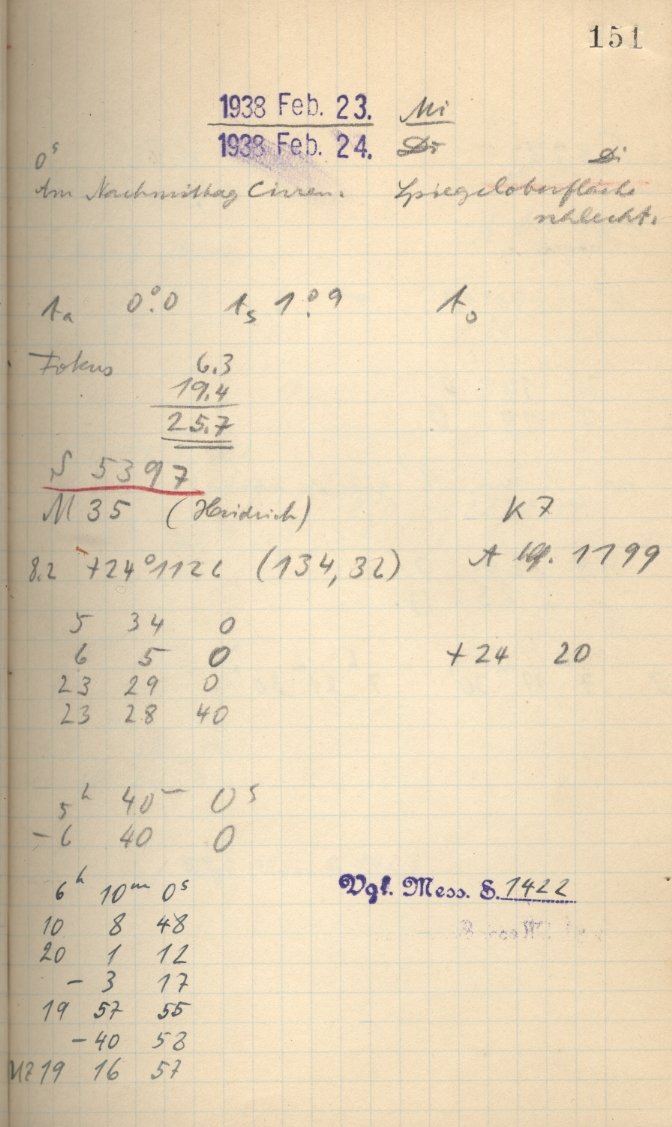 151
1938 Feb. 23. Mi
1938 Feb. 24.
Di
0ˢ
Am Nachmittag Cirren. Spiegeloberfläche
schlecht.
tₐ 0°.0 tₛ 1°.9 t₀
Fokus 6.3
19.4
25.7
S 5397
M 35 (Heidrich) K 7
8.2 +24° 1122 (134,32) A 1199
5 34 0
6 5 0 +24 20
23 29 0
23 28 40
5ʰ 40ᵐ 0ˢ
-6 40 0
6ʰ 10ᵐ 0ˢ Vgl. Mess. S. 1422
10 8 48
20 1 12
- 3 17
19 57 55
-40 58
MZ 19 16 57